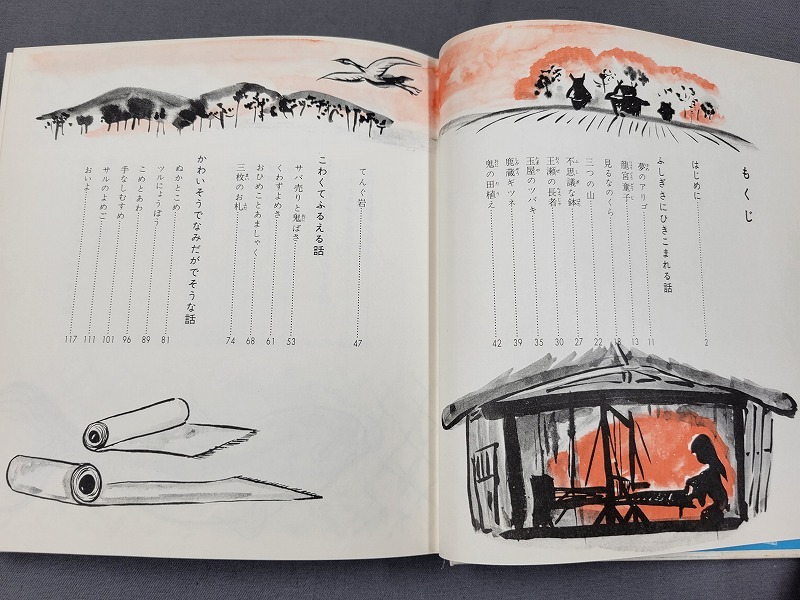 もくじ
はじめに 2
ふしぎさにひきこまれる話
夢のアリゴ 11
龍宮童子 13
見るなのくら 18
三つの山 22
不思議な鉢 27
王瀬の長者 30
玉屋のツバキ 35
鹿蔵ギツネ 39
鬼の田植え 42
てんぐ岩 47
こわくてふるえる話
サバ売りと鬼ばさ 53
くわずよめさ 61
おひめことあましゃく 68
三枚のお札 74
かわいそうでなみだがでそうな話
ぬかとこめ 81
ツルにょうぼう 89
こめとあわ 96
手なしむすめ 101
サルのよめご 111
おいよ 117